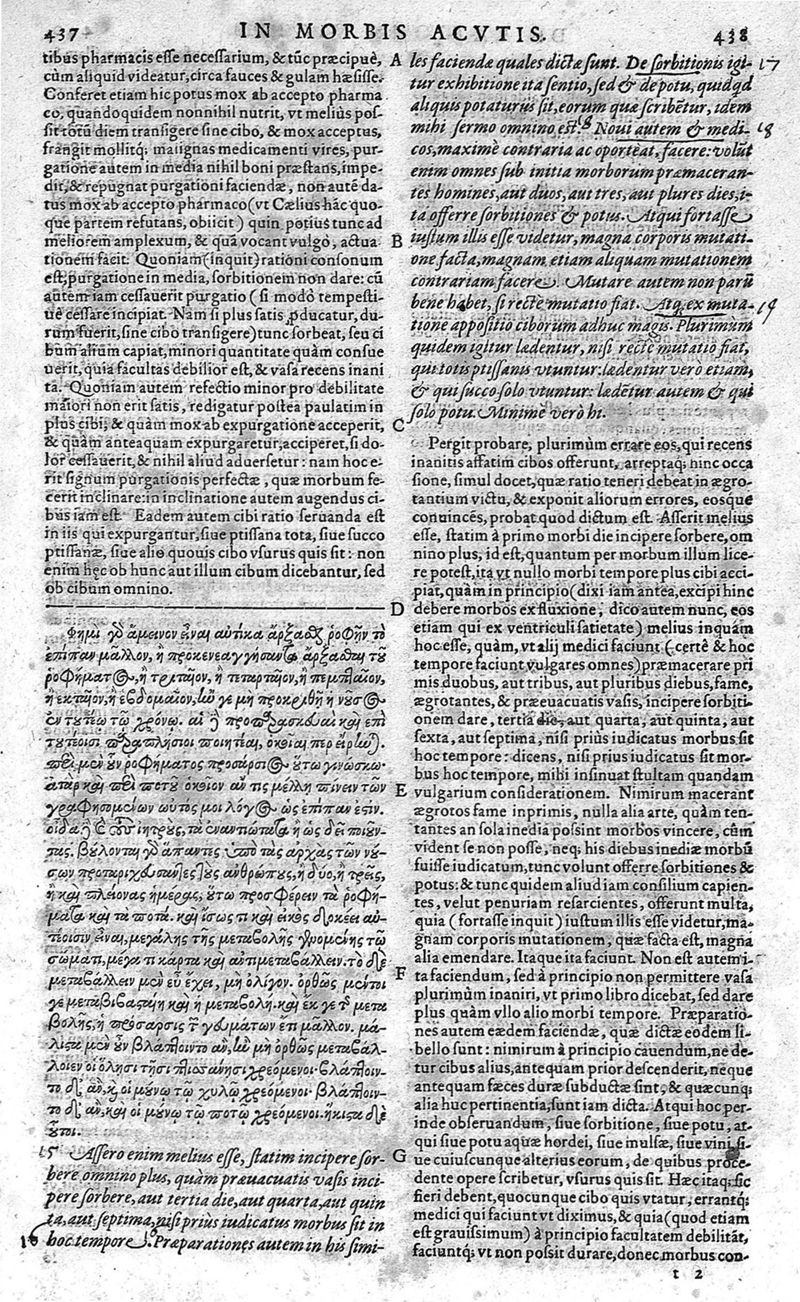 437 IN MORBIS ACVTIS. 438
tibus pharmacis esse necessarium, & tũc præcipuè,
cùm aliquid videatur, circa fauces & gulam hæsisse.
Conferet etiam hic potus mox ab accepto pharma
co, quandoquidem nonnihil nutrit, vt melius pos-
sit totũ diem transigere sine cibo, & mox acceptus,
frangit mollitq; malignas medicamenti vires, pur-
gatione autem in media nihil boni præstans, impe-
dit, & repugnat purgationi faciendæ, non autẽ da-
tus mox ab accepto pharmaco (vt Cælius hác quo-
que partem refutans, obiicit) quin potius tunc ad
meliorem amplexum, & quã vocant vulgò, actua
tionem facit. Quoniam (inquit) rationi consonum
est, purgatione in media, sorbitionem non dare: cũ
autem iam cessauerit purgatio (si modò tempesti-
uè cessare incipiat. Nam si plus satis ꝓducatur, du-
rum fuerit, sine cibo transigere) tunc sorbeat, seu ci
bum alium capiat, minori quantitate quàm consue
uerit, quia facultas debilior est, & vasa recens inani
ta. Quoniam autem refectio minor pro debilitate
maiori non erit satis, redigatur postea paulatim in
plus cibi, & quàm mox ab expurgatione acceperit,
& quàm anteaquam expurgaretur, acciperet, si do-
lor cessauerit, & nihil aliud aduersetur: nam hoc e-
rit signum purgationis perfectæ, quæ morbum fe-
cerit inclinare: in inclinatione autem augendus ci-
bus iam est. Eadem autem cibi ratio seruanda est
in iis qui expurgantur, siue ptissana tota, siue succo
ptissanæ, siue alio quouis cibo vsurus quis sit: non
enim hęc ob hunc aut illum cibum dicebantur, sed
ob cibum omnino.
Φημὶ γὸ ἄμεινον εἶναι αὐτίκα ἄρξαϑς ῥοφῆν τὸ
ἐπίπαν μᾶλλον, ἢ προκενεαγγήσαντα ἄρξασθαι τοῦ
ῥοφήματος, ἢ τριταῖον, ἢ τεταρταῖον, ἢ πεμπταῖον,
ἢ ἑκταῖον, ἢ ἑβδομαῖον, ἢν γε μὴ προκριθῇ ἡ νοῦσος
ἐν τουτέῳ τῷ χρόνῳ. αἱ ἢ προπαρασκευαὶ καὶ ἐπὶ
τουτέοισι παραπλήσιοι ποιητέαι, ὁκοῖαι περ εἴρηνται.
περὶ μὲν οὖν ῥοφήματος προσάρσιος οὕτω γινώσκω.
ἀτὰρ καὶ περὶ ποτοῦ ὁκοῖον ἄν τις μέλλῃ πίνειν τῶν
γραφησομένων ωὐτός μοι λόγος ὡς ἐπίπαν ἐστιν.
οἶδα ἢ καὶ τοὺς ἰητροὺς, τὰ ἐναντιώτατα ἢ ὡς δεῖ ποιεῦν
τας. βούλονται γὸ ἅπαντες ὑπὸ τὰς ἀρχὰς τῶν νού-
σων προταριχεύσαντες τοὺς ἀνθρώπους, ἢ δύο, ἢ τρεῖς,
ἢ καὶ πλείονας ἡμέρας, οὕτω προσφέρειν τὰ ῥοφή-
ματα καὶ τὰ ποτά. καὶ ἴσως τι καὶ εἰκὸς δοκέει αὐ-
τέοισιν εἶναι, μεγάλης τῆς μεταβολῆς γινομένης τῷ
σώματι, μέγα τι κάρτα καὶ ἀντιμεταβάλλειν. τὸ δὲ
μεταβάλλειν μὲν εὖ ἔχει, μὴ ὀλίγον. ὀρθῶς μέντοι
γε μεταβιβαστέη καὶ ἡ μεταβολή. καὶ ἔκ γε τῆς μετα
βολῆς, ἡ πρόσαρσις τῶν γευμάτων ἔτι μᾶλλον. μά-
λιστα μὲν οὖν βλάπτοιντο ἂν, ἢν μὴ ὀρθῶς μεταβάλ-
λοιεν οἱ ὅλῃσι τῇσι πτισάνῃσι χρεόμενοι· βλάπτοιν-
το δ' ἂν, κ̣ οἱ μούνῳ τῷ χυλῷ χρεόμενοι· βλάπτοιν-
το δ' ἂν, καὶ οἱ μούνῳ τῷ ποτῷ χρεόμενοι. ἥκιστα δὲ
οὗτοι.
15 Assero enim melius esse, statim incipere sor-
bere omnino plus, quàm præuacuatis vasis inci-
pere sorbere, aut tertia die, aut quarta, aut quin
ta, aut septima, nisi prius iudicatus morbus sit in
16 hoc tempore. Præparationes autem in his simi-
A les faciendæ quales dictæ sunt. De sorbitionis igi- 17
tur exhibitione ita sentio, sed & de potu, quidqd
aliquis potaturus sit, eorum quæ scribẽtur, idem
mihi sermo omnino est. 18 Noui autem & medi- 18
cos, maximè contraria ac oporteat, facere: volũt
enim omnes sub initia morborum præmaceran-
tes homines, aut duos, aut tres, aut plures dies, i-
ta offerre sorbitiones & potus. Atqui fortasse
B iustum illis esse videtur, magna corporis mutati-
one facta, magnam etiam aliquam mutationem
contrariam facere. Mutare autem non parũ
bene habet, si recte mutatio fiat. Atq; ex muta- 19
tione appositio ciborum adhuc magis. Plurimùm
quidem igitur lædentur, nisi rectè mutatio fiat,
qui totis ptissanis vtuntur: lædentur verò etiam,
& qui succo solo vtuntur: lædẽtur autem & qui
solo potu. Minimè verò hi.
C
Pergit probare, plurimùm errare eos, qui recens
inanitis affatim cibos offerunt, arreptaq; hinc occa
sione, simul docet, quæ ratio teneri debeat in ægro-
tantium victu, & exponit aliorum errores, eosque
conuincẽs, probat quod dictum est. Asserit melius
esse, statim à primo morbi die incipere sorbere, om
nino plus, id est, quantum per morbum illum lice-
re potest, ita vt nullo morbi tempore plus cibi acci-
piat, quàm in principio (dixi iam antea, excipi hinc
D debere morbos ex fluxione, dico autem nunc, eos
etiam qui ex ventriculi satietate) melius inquàm
hoc esse, quàm, vt alij medici faciunt (certè & hoc
tempore faciunt vulgares omnes) præmacerare pri
mis duobus, aut tribus, aut pluribus diebus, fame,
ægrotantes, & præeuacuatis vasis, incipere sorbiti-
onem dare, tertia die, aut quarta, aut quinta, aut
sexta, aut septima, nisi prius iudicatus morbus sit
hoc tempore: dicens, nisi prius iudicatus sit mor-
bus hoc tempore, mihi insinuat stultam quandam
E vulgarium considerationem. Nimirum macerant
ægrotos fame inprimis, nulla alia arte, quàm ten-
tantes an sola inedia possint morbos vincere, cùm
vident se non posse, neq; his diebus inediæ morbũ
fuisse iudicatum, tunc volunt offerre sorbitiones &
potus: & tunc quidem aliud iam consilium capien-
tes, velut penuriam resarcientes, offerunt multa,
quia (fortasse inquit) iustum illis esse videtur, ma-
gnam corporis mutationem, quæ facta est, magna
alia emendare. Itaque ita faciunt. Non est autem i-
F ta faciendum, sed à principio non permittere vasa
plurimùm inaniri, vt primo libro dicebat, sed dare
plus quàm vllo alio morbi tempore. Præparatio-
nes autem eædem faciendæ, quæ dictæ eodem li-
bello sunt: nimirum à principio cauendum, ne de-
tur cibus alius, antequam prior descenderit, neque
antequam fæces duræ subductæ sint, & quæcunq;
alia huc pertinentia, sunt iam dicta. Atqui hoc per-
inde obseruandum, siue sorbitione, siue potu, at-
qui siue potu aquæ hordei, siue mulsæ, siue vini, si-
G ue cuiuscunque alterius eorum, de quibus proce-
dente opere scribetur, vsurus quis sit. Hæc itaq; sic
fieri debent, quocunque cibo quis vtatur, errantq;
medici qui faciunt vt diximus, & quia (quod etiam
est grauissimum) à principio facultatem debilitãt,
faciuntq; vt non possit durare, donec morbus con-
t 2